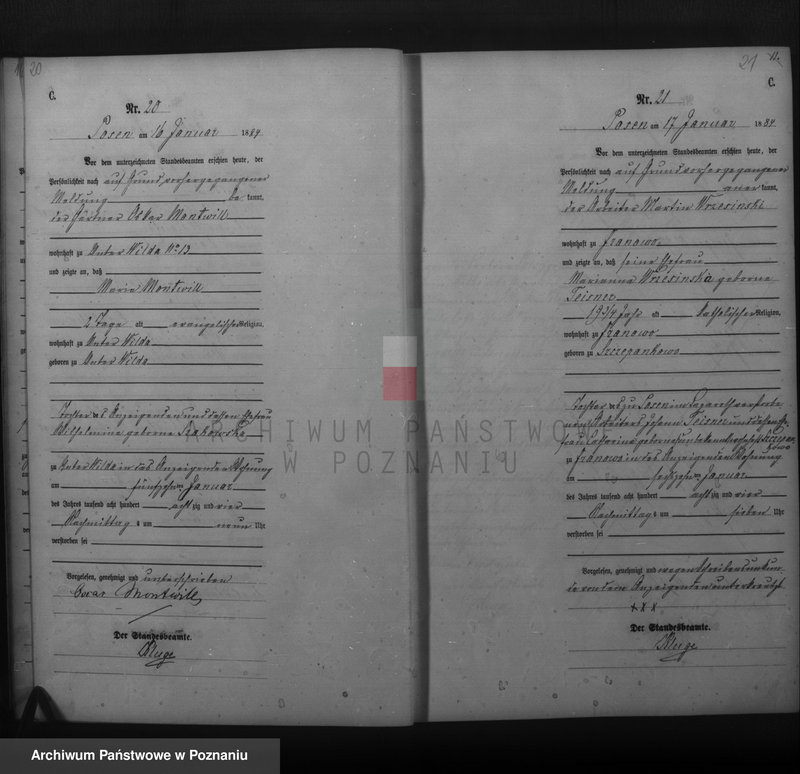 20
C.
Nr. 20
Posen am 16 Januar 1884
Vor dem unterzeichneten Standesbeamten erschien heute, der
Persönlichkeit nach auf Grund vorhergegangener
Meldung be kannt,
der Gärtner Oskar Montwill
wohnhaft zu Unter Wilda No 13
und zeigte an, daß
Maria Montwill
2 Tage alt evangelischer Religion,
wohnhaft zu Unter Wilda
geboren zu Unter Wilda
Tochter des Anzeigenden und dessen Ehefrau
Wilhelmine geborne
zu Unter Wilda in des Anzeigenden Wohnung
am fünfzehnten Januar
des Jahres tausend acht hundert achtzig und vier
Nachmittags um neun Uhr
verstorben sei
Vorgelesen, genehmigt und unterschrieben
Oscar Montwill
Der Standesbeamte.
Kluge
21
11.
C.
Nr. 21
Posen am 17 Januar 1884
Vor dem unterzeichneten Standesbeamten erschien heute, der
Persönlichkeit nach auf Grund vorhergegangener
Meldung aner kannt,
der Arbeiter Martin Wrzesinski
wohnhaft zu Franowo
und zeigte an, daß seine Ehefrau
Marianna Wrzesinska geborne
Teisner
19 3/4 Jahr alt katholischer Religion,
wohnhaft zu Franowo
geboren zu Szczepankowo
Tochter des zu Posen im Lazareth verstorbe-
nen Arbeiters Johann Teisner und dessen Ehe-
frau Catharina geborne
zu Franowo in des Anzeigenden Wohnung
am sechszehnten Januar
des Jahres tausend acht hundert achtzig und vier
Nachmittags um sieben Uhr
verstorben sei
Vorgelesen, genehmigt und wegen Schreibensunkun-
de von dem Anzeigenden unterkreuzt
+ X X
Der Standesbeamte.
Kluge
ARCHIWUM PAŃSTWOWE
W POZNANIU
Archiwum Państwowe w Poznaniu